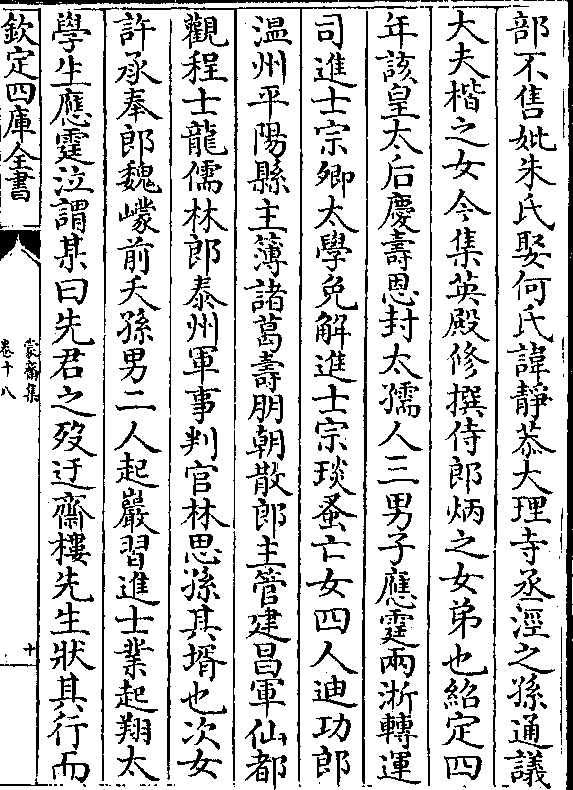 部不售妣朱氏娶何氏諱靜恭大理寺丞涇之孫通議
大夫楷之女今集英殿修撰侍郎炳之女弟也紹定四
年該皇太后慶壽恩封太孺人三男子應霆兩浙轉運
司進士宗卿太學免解進士宗琰蚤亡女四人迪功郎
溫州平陽縣主簿諸葛壽朋朝散郎主管建昌軍仙都
觀程士龍儒林郎泰州軍事判官林思孫其壻也次女
許承奉郎魏㠓前夭孫男二人起巖習進士業起翔太
學生應霆泣謂某曰先君之歿迂齋樓先生狀其行而
欽定四庫全書
蒙齋集
卷十八
十